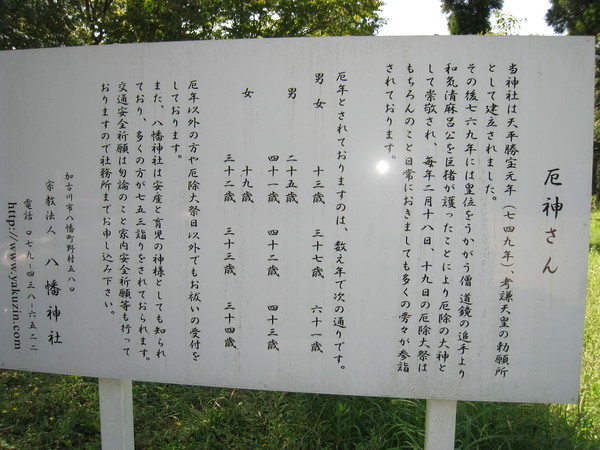 厄神さん
当神社は天平勝宝元年(七四九年)、考謙天皇の勅願所
として建立されました。
その後七六九年には皇位をうかがう僧 道鏡の追手より
和気清麻呂公を臣猪が護ったことにより厄除の大神と
して崇敬され、毎年二月十八日、十九日の厄除大祭は
もちろんのこと日常におきましても多くの方々が参詣
されております。
厄年とされておりますのは、数え年で次の通りです。
男女 十三歳 三十七歳 六十一歳
男 二十五歳 四十一歳 四十二歳 四十三歳
女 十九歳 三十二歳 三十三歳 三十四歳
厄年以外の方や厄除大祭日以外でもお祓いの受付を
しております。
また、八幡神社は安産と育児の神様としても知られ
ており、多くの方が七五三詣りをされておられます。
交通安全祈願は勿論のこと家内安全祈願等も行って
おりますので社務所までお申し込み下さい。
加古川市八幡町野村五八〇
宗教法人 八幡神社
電話 〇七九-四三八-六五二二
http://www.yakuzin.com